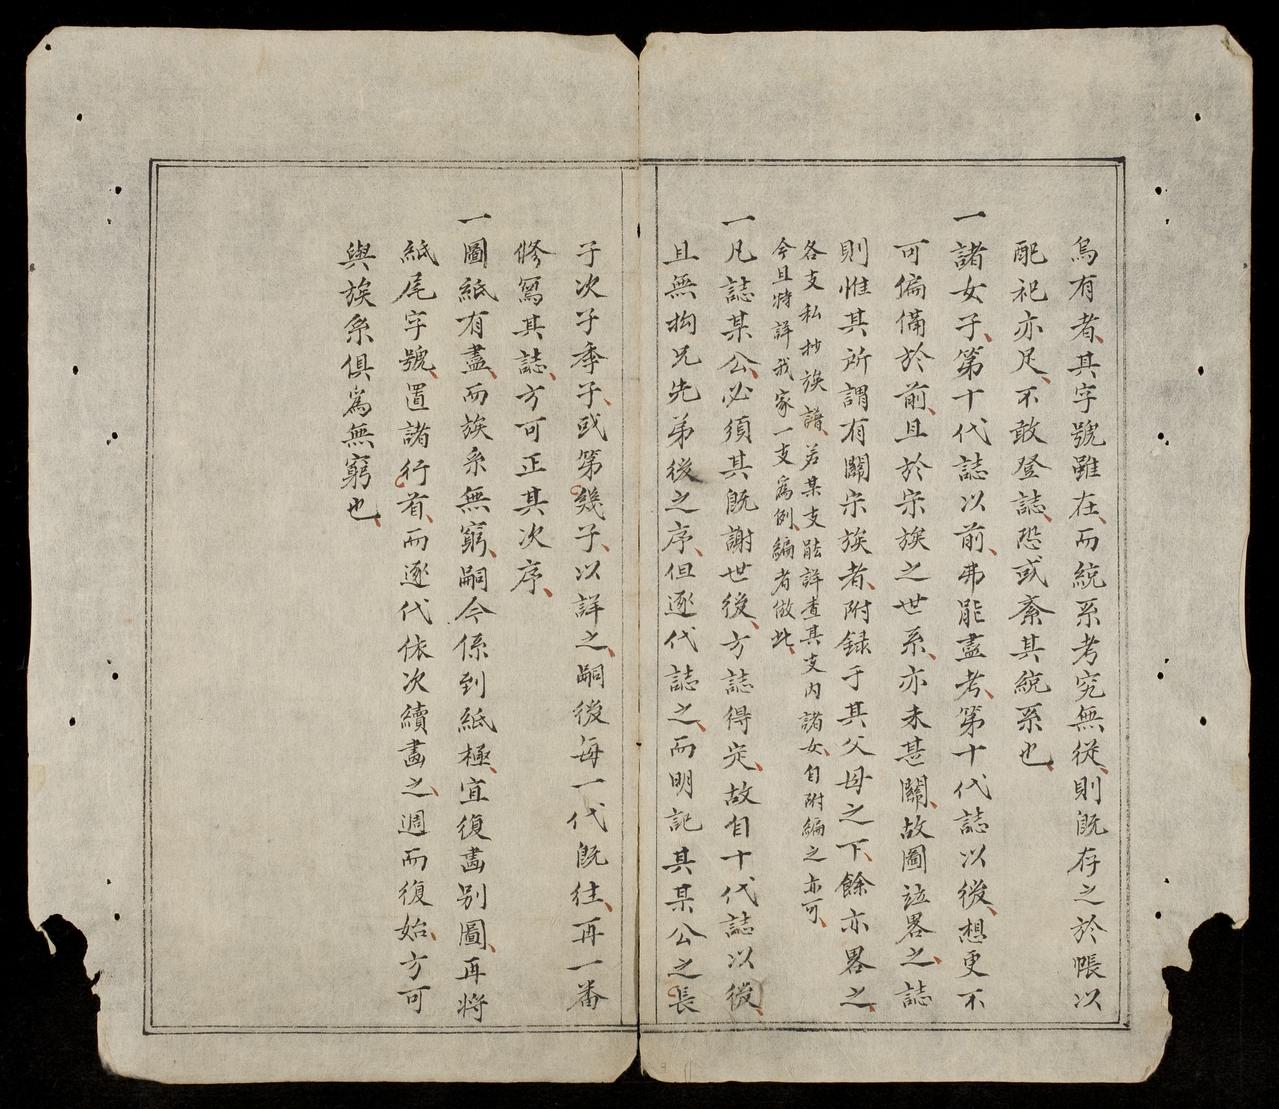 烏有者其字號雖在而統系考究無從則既存之於帳以
配祀亦足不敢登誌恐或紊其統系也
一諸女子第十代誌以前弗能盡考第十代誌以後想更不
可偏僃於前且於宗族之世系亦未甚關故圖竝畧之誌
則惟其所謂有關宗族者附録于其父母之下餘亦畧之
各支私抄族譜若某支能詳查其支内諸女自附編之亦可
今且特詳我家一支爲例編者倣此
一凡誌某公必須其既謝世後方誌得定故自十代誌以後
且無拘兄先弟後之序但逐代誌之而明記其某公之長
子次子季子或第幾子以詳之嗣後每一代既往再一番
修寫其誌方可正其次序
一圖紙有盡而族系無窮嗣今係到紙極宜復畵别圖再將
紙尾字號置諸行首而逐代依次續畵之週而復始方可
與族系俱爲無窮也